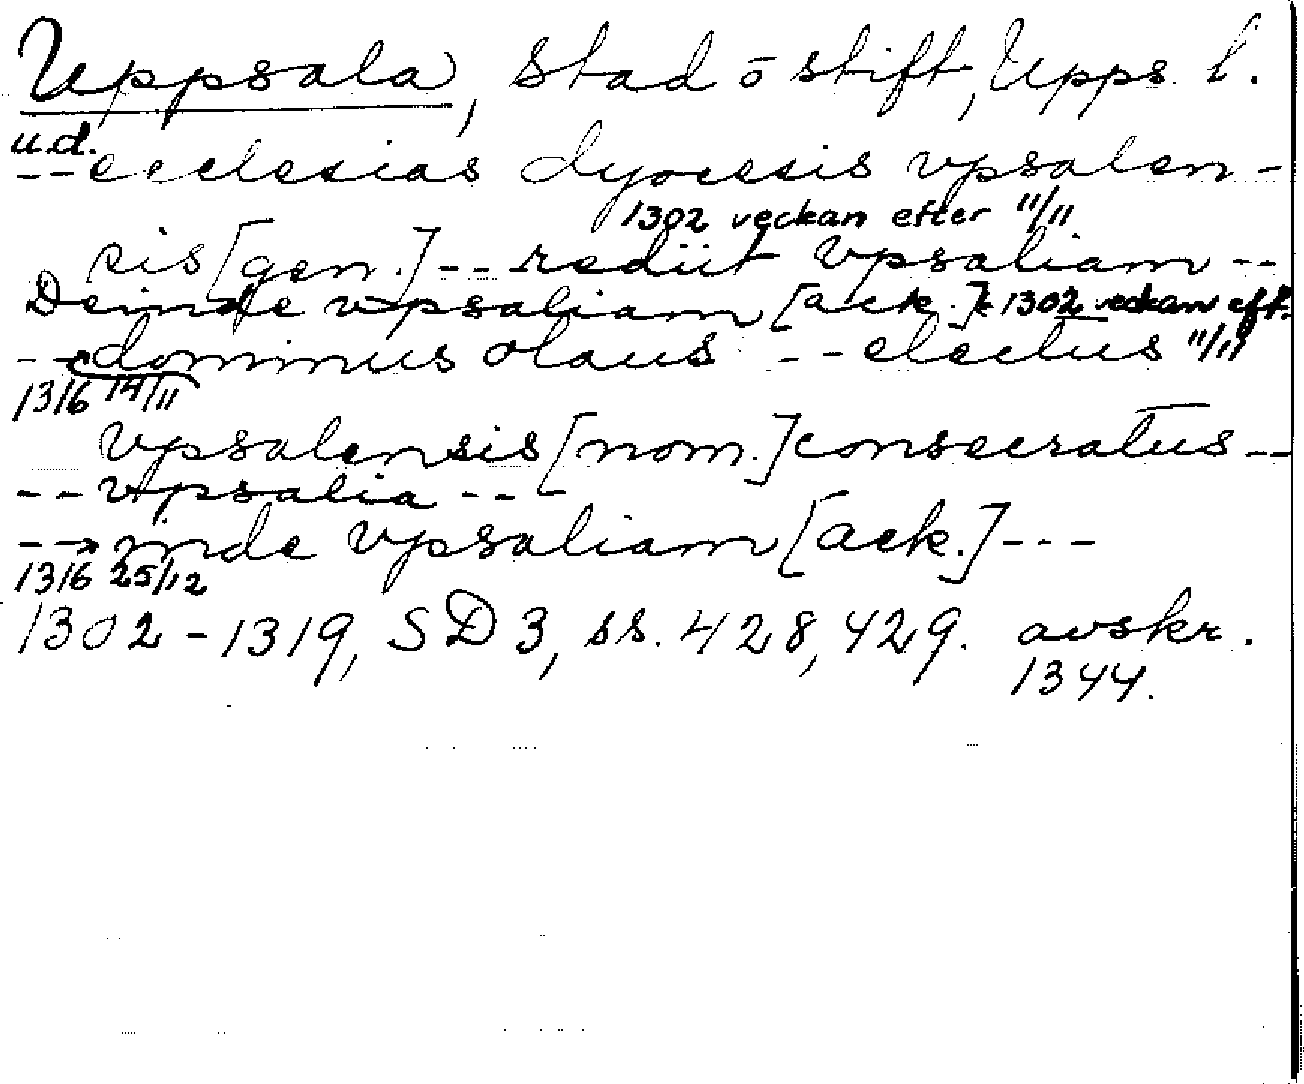 Uppsala, Stad o stift, Upps. l.
u.d.
-- ecclesias dyocesis vpsalen-
1302 veckan efter 11/11
sis [gen.] -- rediit vpsaliam --
Deinde vpsaliam [ack.] 1302 veckan eft. 11/11
-- dominus olaus -- electus
1316 14/11
vpsalensis [nom.] consecratus --
-- vpsalia ---
-- inde vpsaliam [ack.] ---
1316 25/12
1302-1319, SD 3, ss. 428, 429. avskr.
1344.